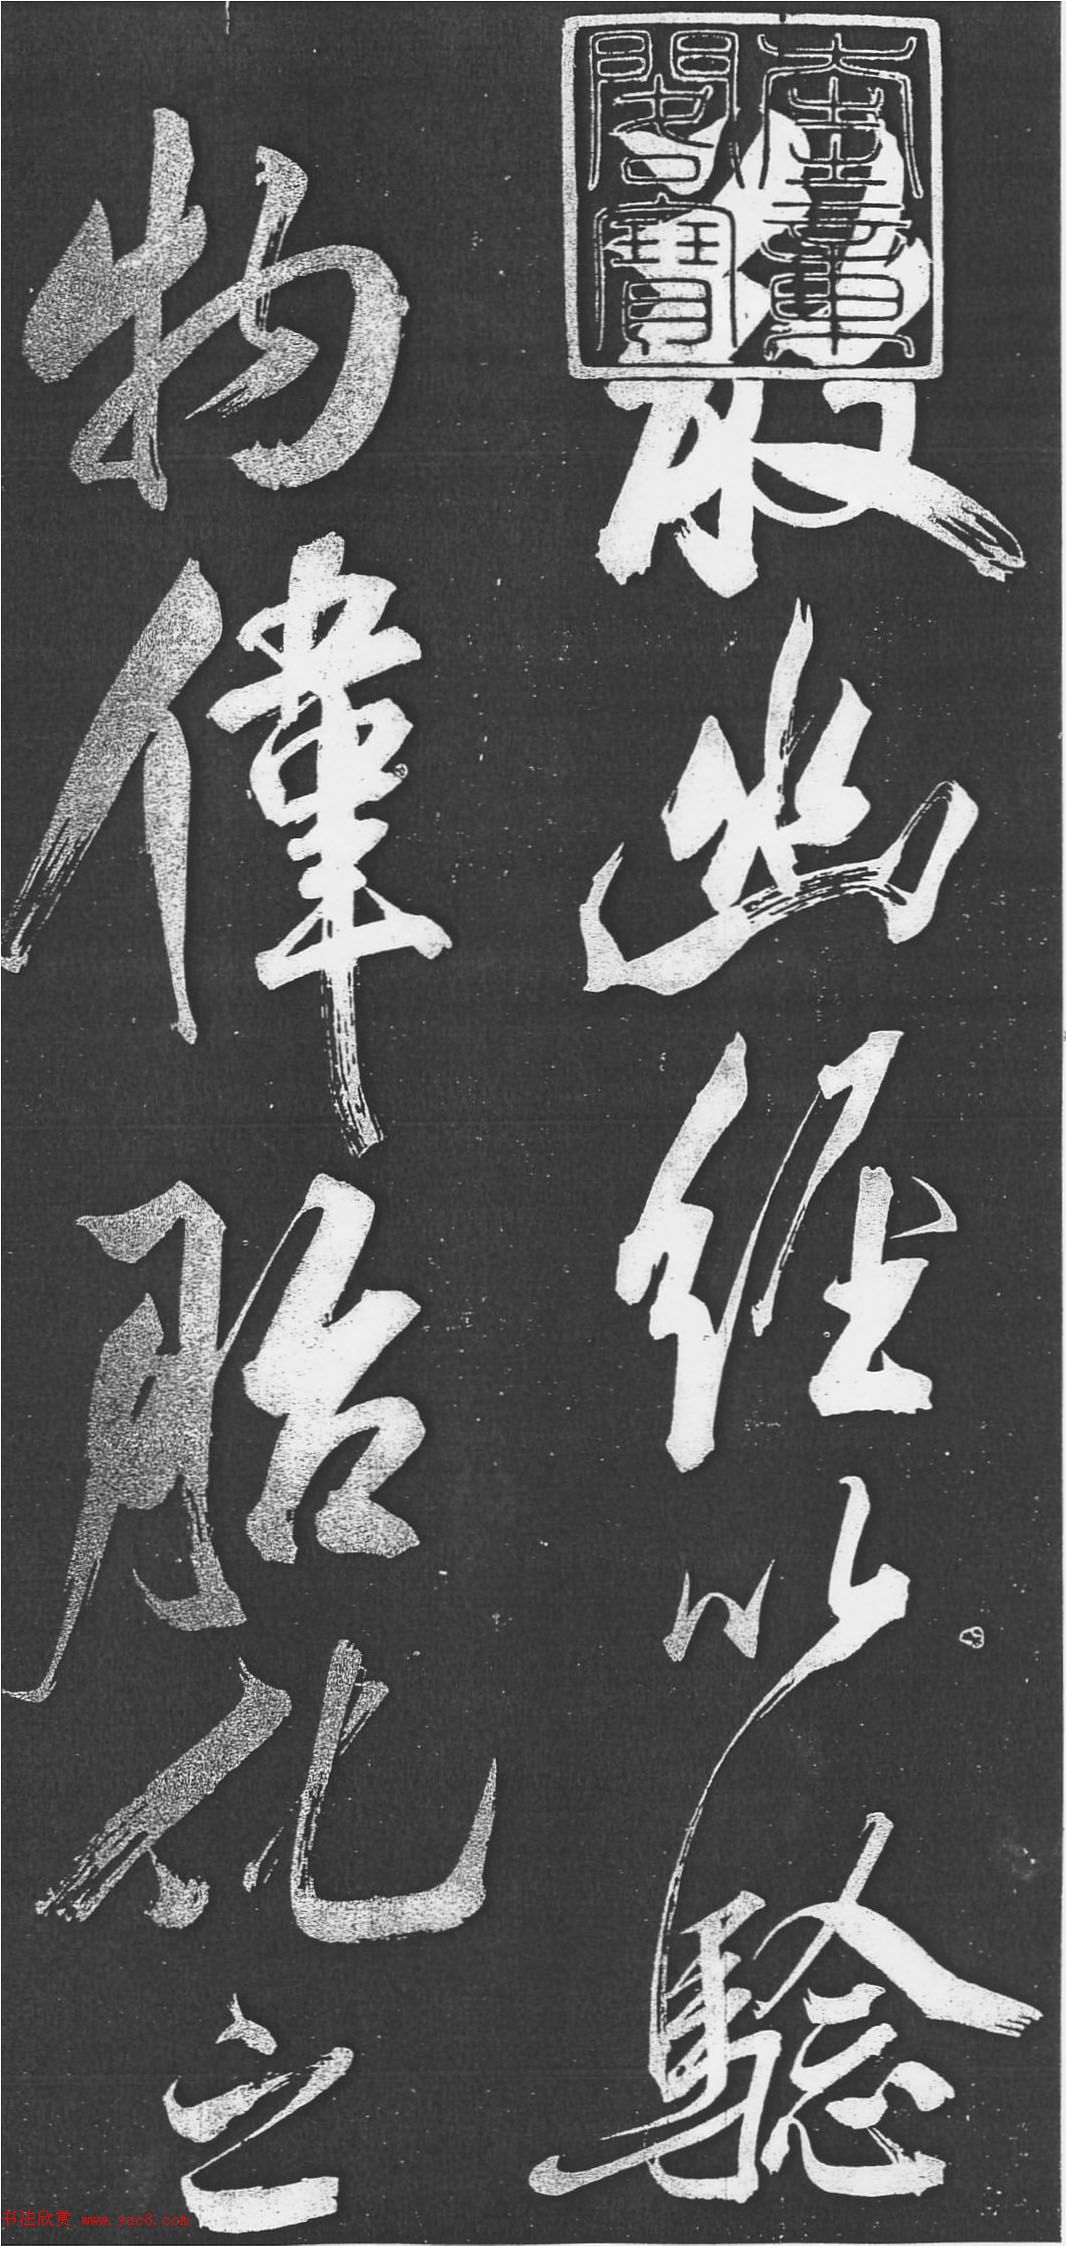 奎章
閣寶
散幽經以驗
物偉胎化之
书法欣赏 www.yac8.com